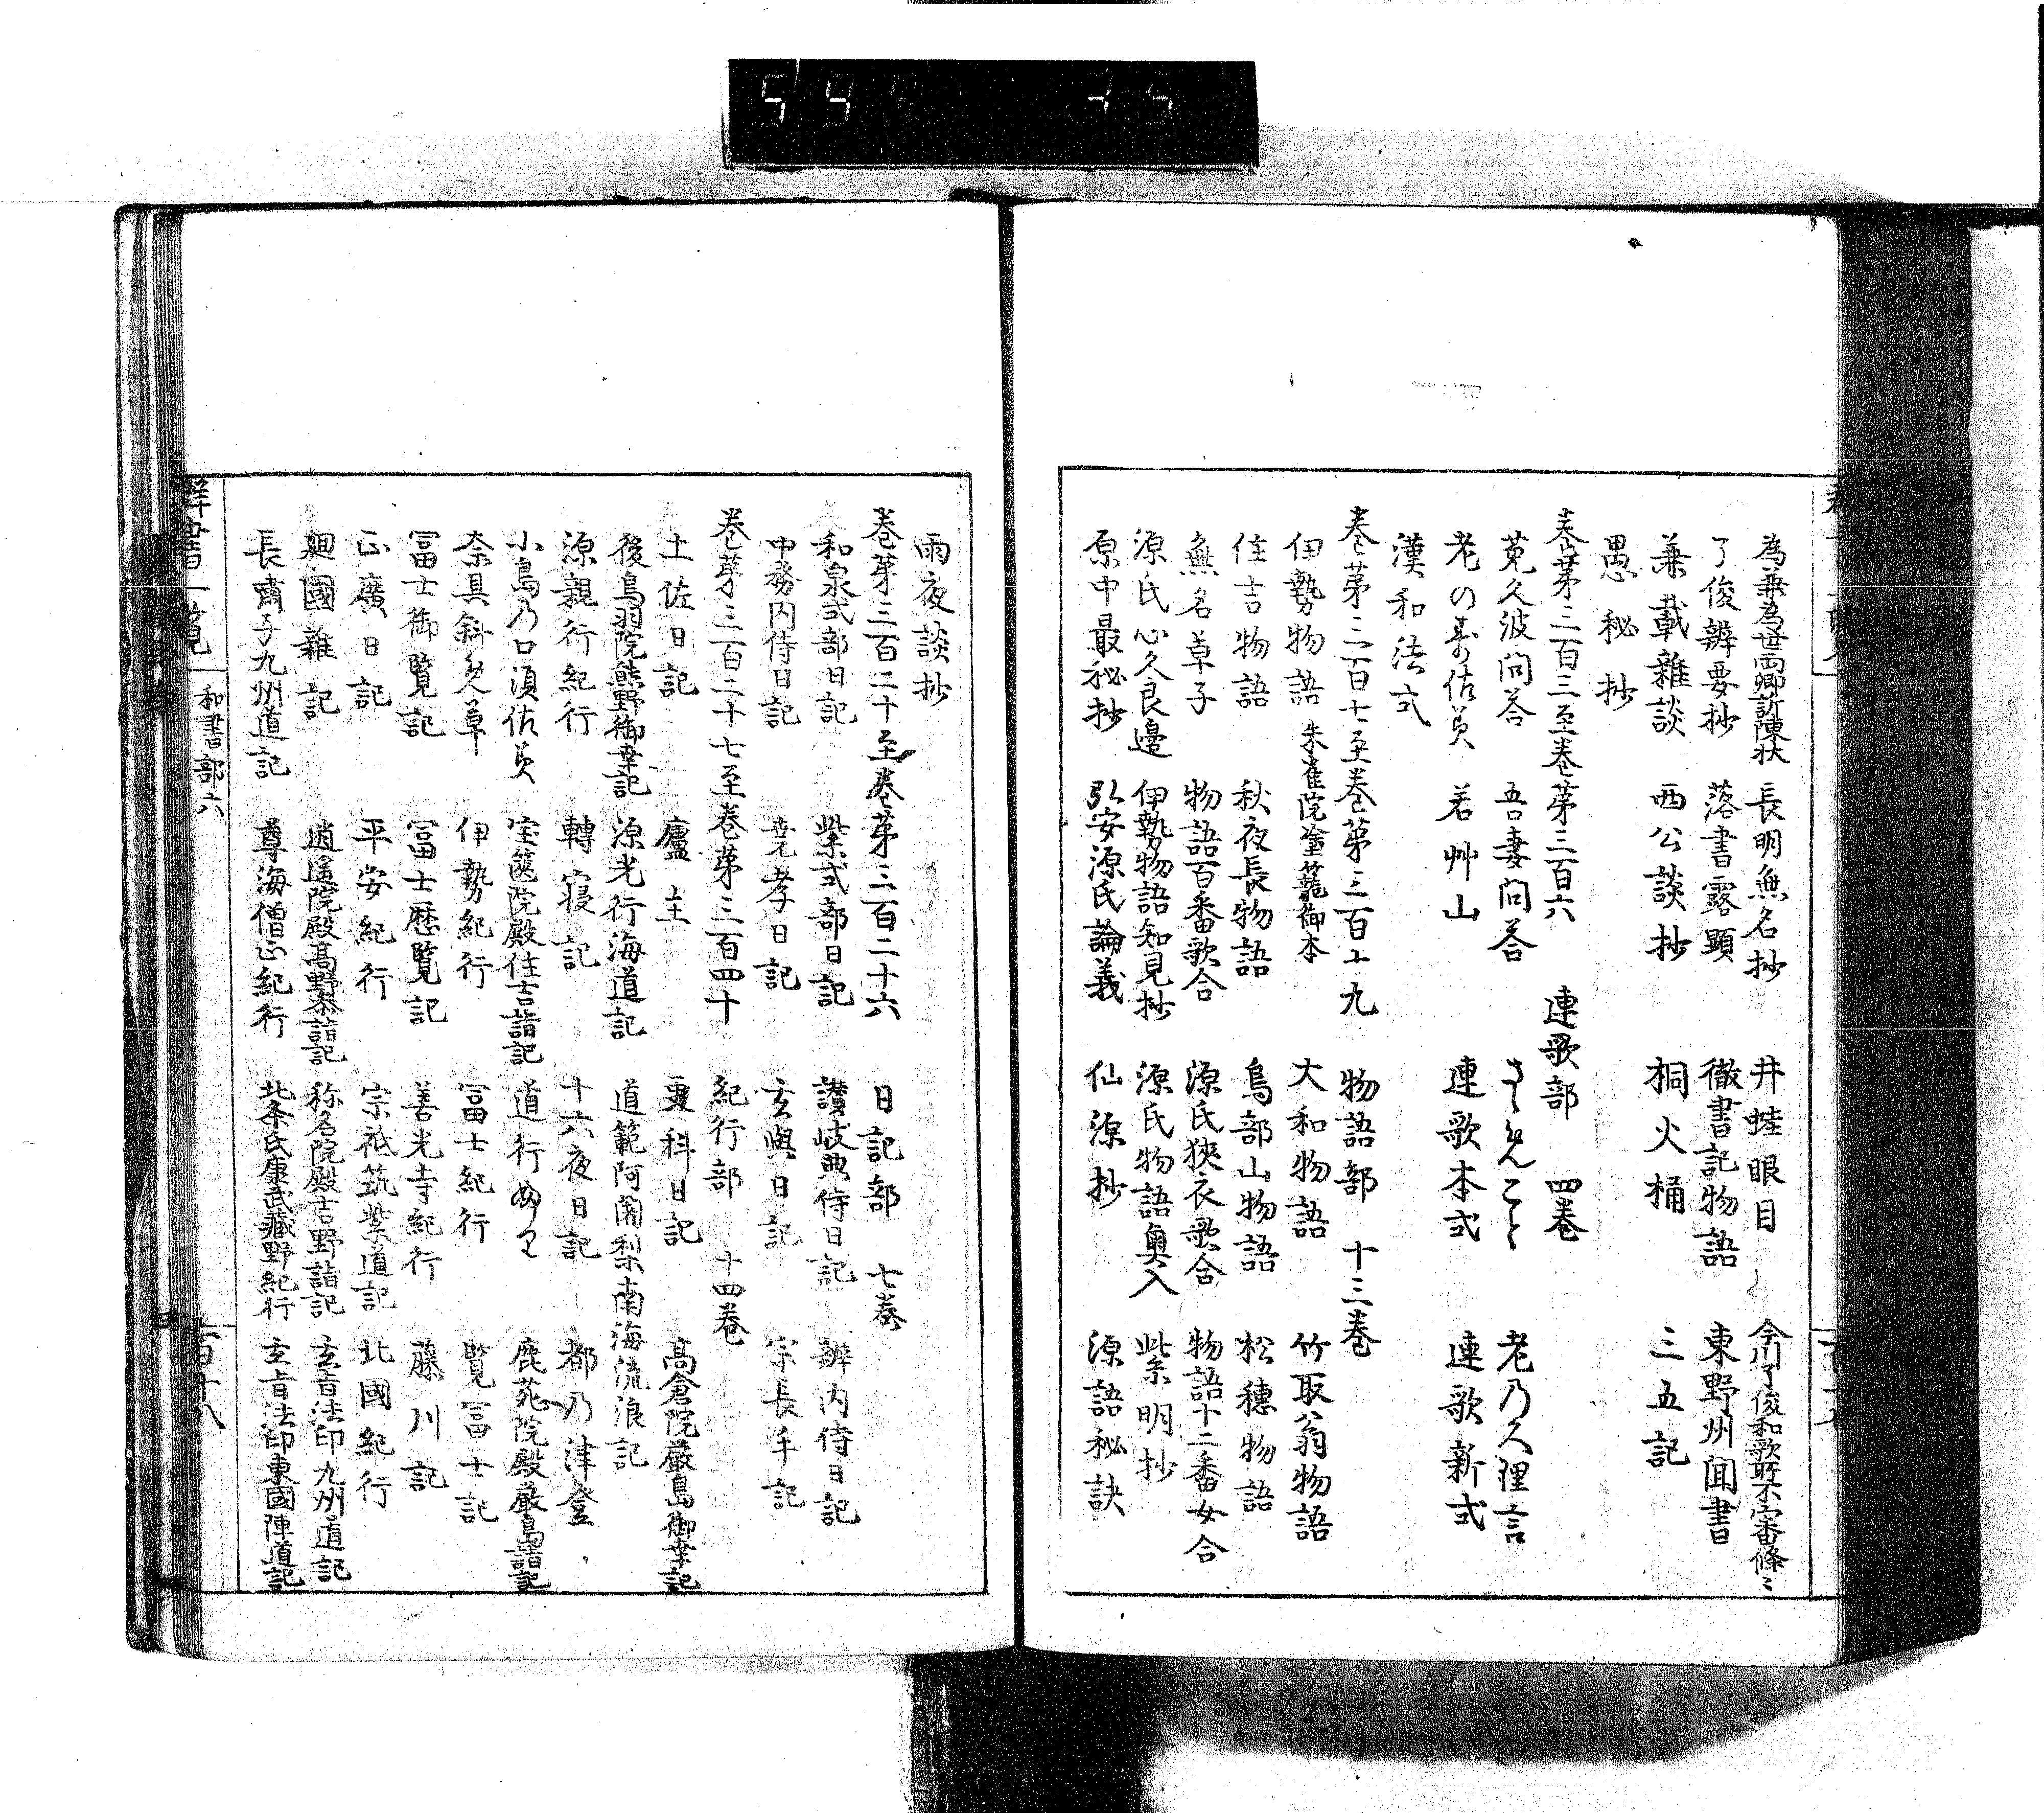 為兼為世両卿訴陳状　長明無名抄　井蛙眼目　今川了俊和歌所不審條〻
了俊辨要抄　落書露顕　徹書記物語　東野州聞書
兼載雜談　西公談抄　桐火桶　三五記
愚秘抄
巻苐三百三至巻苐三百六　連歌部　四巻
莵久波問答　吾妻問答　さゝめこと　老乃久理言
老のすさみ　若艸山　連歌本式　連歌新式
漢和法式
巻苐三百七至巻苐三百十九　物語部　十三巻
伊勢物語　朱雀院塗籠御本　大和物語　竹取翁物語
住吉物語　秋夜長物語　鳥部山物語　松穗物語
無名草子　物語百番歌合　源氏狹衣歌合　物語十二番女合
源氏心久良邊　伊勢物語知見抄　源氏物語奥入　紫明抄
原中最秘抄　弘安源氏論義　仙源抄　源語秘訣
雨夜談抄
巻苐三百二十至巻苐三百二十六　日記部　七巻
和泉式部日記　紫式部日記　讃岐典侍日記　辨内侍日記
中務内侍日記　尭孝日記　玄與日記　宗長手記
巻苐三百二十七至巻苐三百四十　紀行部　十四巻
土佐日記　廬主　更科日記　高倉院厳島御幸記
後鳥羽院熊野御幸記　源光行海道記　道範阿闍梨南海流浪記
源親行紀行　轉寝記　十六夜日記　都乃津登
小島乃口須佐美　宝篋院殿住吉詣記　道行ぬり　鹿苑院殿厳島詣記
奈具斜免草　伊勢紀行　冨士紀行　覧冨士記
冨士御覧記　冨士歴覧記　善光寺紀行　藤川記
正廣日記　平安紀行　宗祇筑紫道記　北國紀行
廻國雜記　逍遥院殿高野参詣記　称名院殿吉野詣記　玄旨法印九州道記
長嘯子九州道記　尊海僧正紀行　北条氏康武藏野紀行　玄旨法印東國陣道記
群書一覧　和書部六　百十八